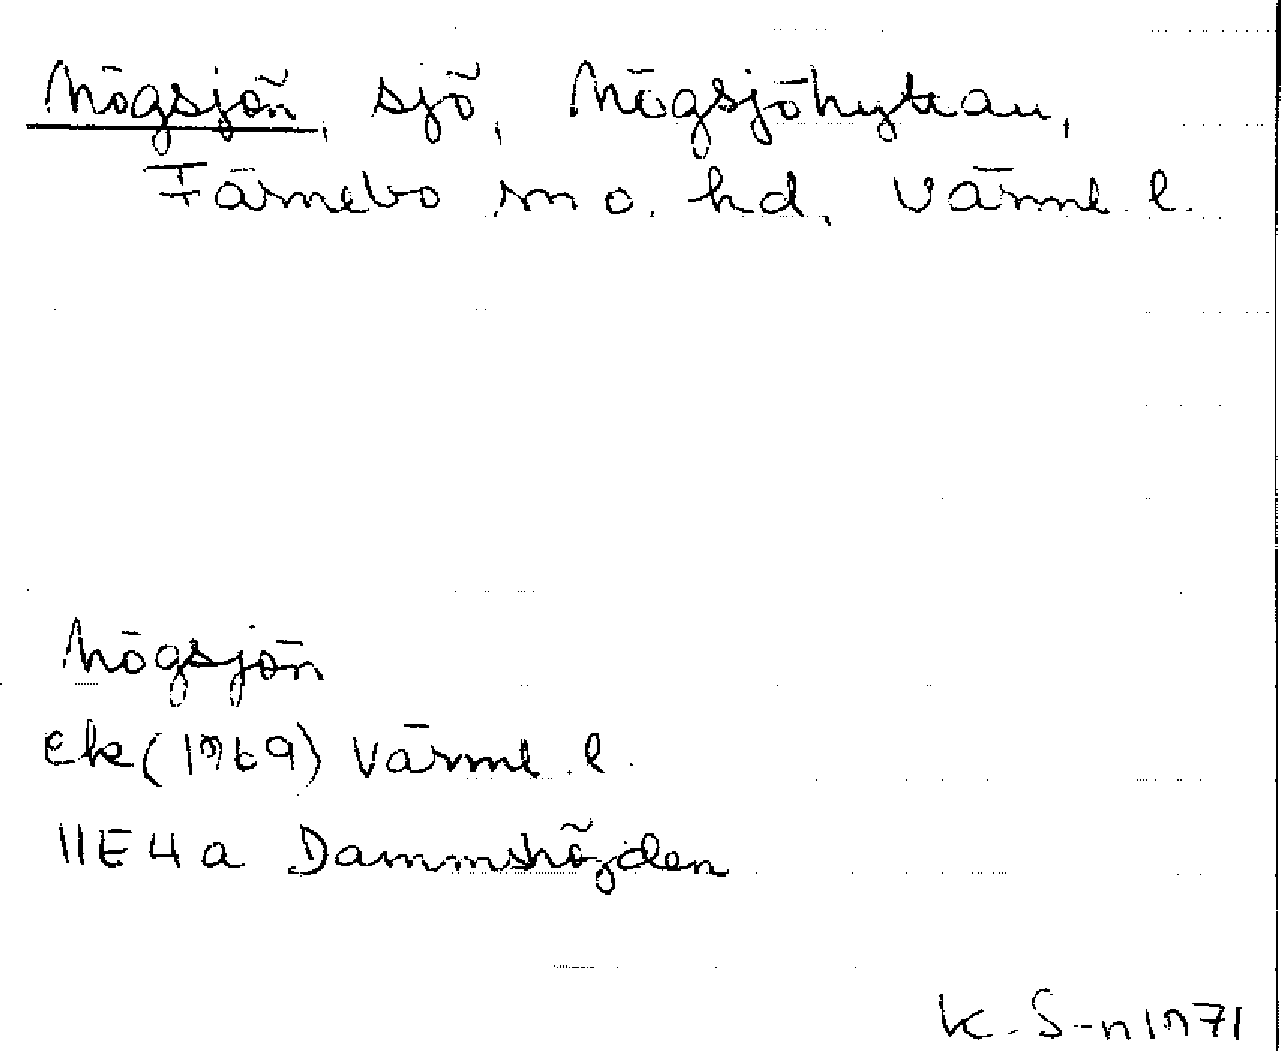 Mögsjön, sjö, Mögsjöhyttan,
Färnebo sn o. hd, Värml. l.
Mögsjön
ek (1969) Värml. l.
11E4a Dammshöjden
K. S-n 1971